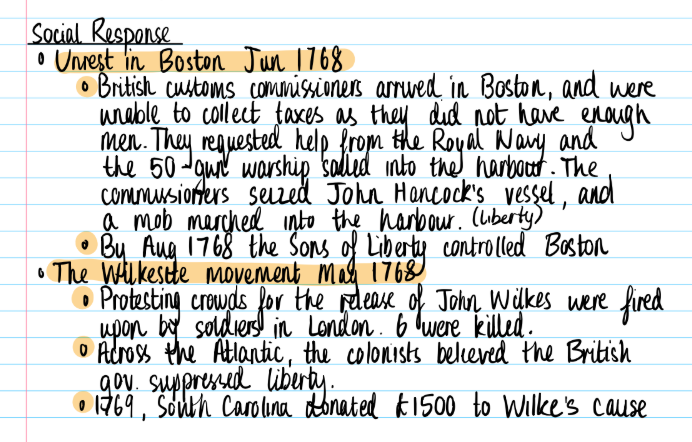 Social Response
• Unrest in Boston Jun 1768
• British customs commissioners arrived in Boston, and were
unable to collect taxes as they did not have enough
men. They requested help from the Royal Navy and
the 50-gun warship sailed into the harbour. The
commissioners seized John Hancock's vessel, and
a mob marched into the harbour. (Liberty)
• By Aug 1768 the Sons of Liberty controlled Boston
• The Wilkesite movement May 1768
• Protesting crowds for the release of John Wilkes were fired
upon by soldiers in London. 6 were killed.
• Across the Atlantic, the colonists believed the British
gov. suppressed liberty.
• 1769, South Carolina donated £1500 to Wilke's cause